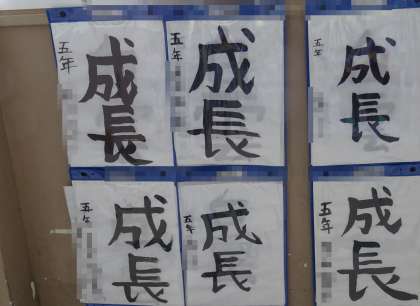 成長
五年
成長
五年
成長
五年
成長
五年
成長
五年
成長
五年